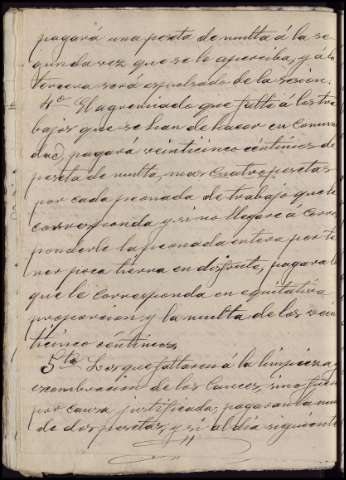 pagará una peseta de multa á la se
gunda vez que se le aperciba, y á la
tercera será espulsado de la sesion.
4º El agremiado que falte á los tra
bajos que se han de hacer en comuni
dad, pagará veinticinco céntimos de
peseta de multa, mas cuatro pesetas
por cada peonada de trabajo que le
corresponda y si no llegare á corres
ponderle la peonada entera por te
ner poca tierra en disfrute, pagara lo
que le corresponda en equitativa
proporcion y la multa de los vein
ticinco céntimos.
5ta Los que faltaren á la limpieza y
escombracion de los cauces, sino fuese
por causa justificada, pagaran la mul
de dos pesetas, y si al dia siguiente